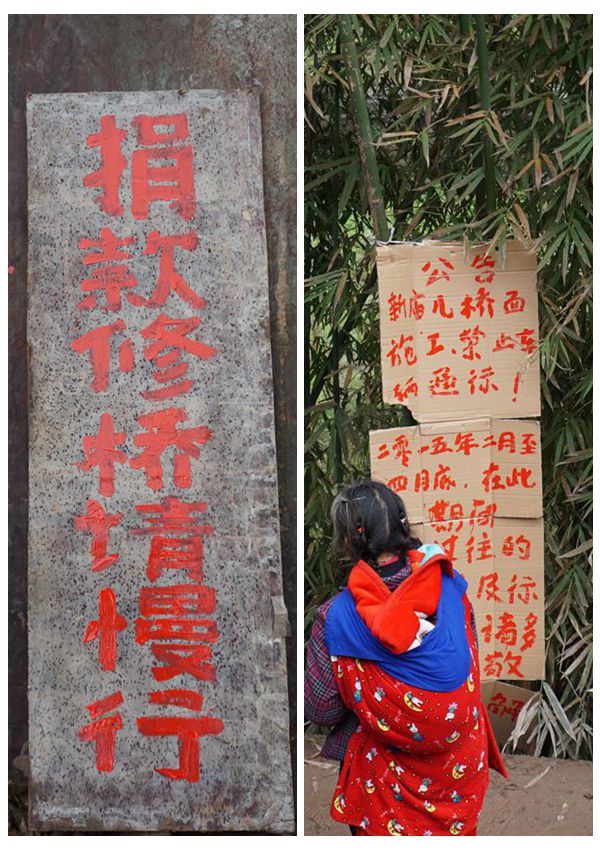 捐款修桥请慢行
公告
新庙儿桥面
施工、禁止车
辆通行！
二零一五年二月至
四月底，在此
期间
过往的
及行
请多
敬